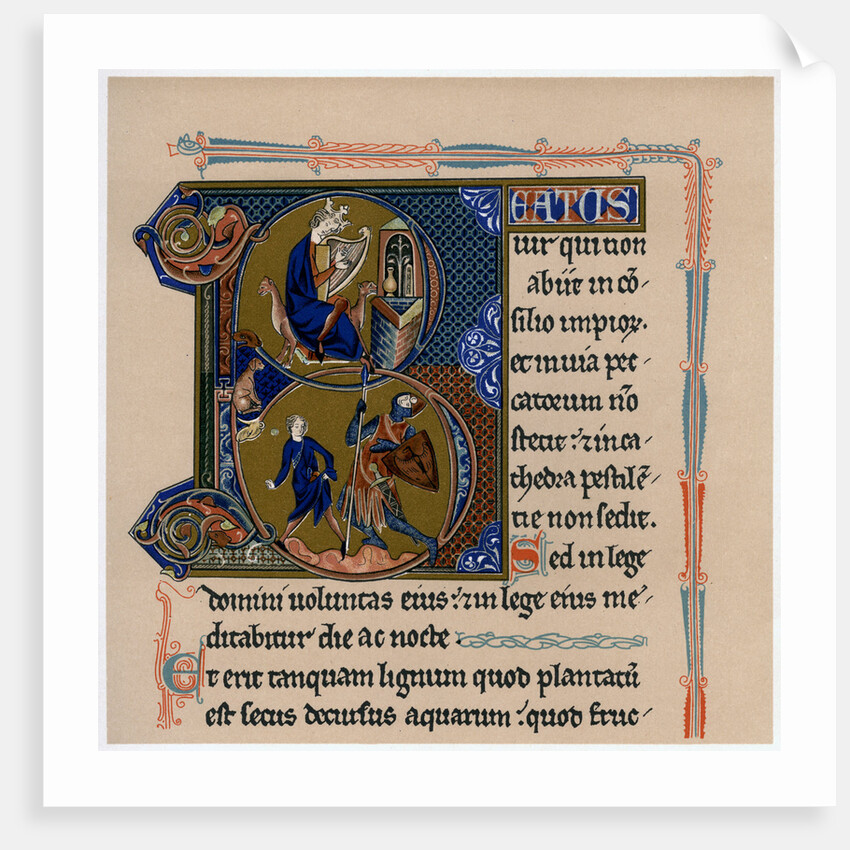 BEATUS
uir qui non
abiit in cō-
silio impioꝝ.
et in uia pec-
catorum nō
stetit : ⁊ in ca-
thedra pestilē-
tie non sedit.
Sed in lege
domini uoluntas eius : ⁊ in lege eius me-
ditabitur die ac nocte.
Et erit tanquam lignum quod plantatū
est secus decursus aquarum : quod fruc-